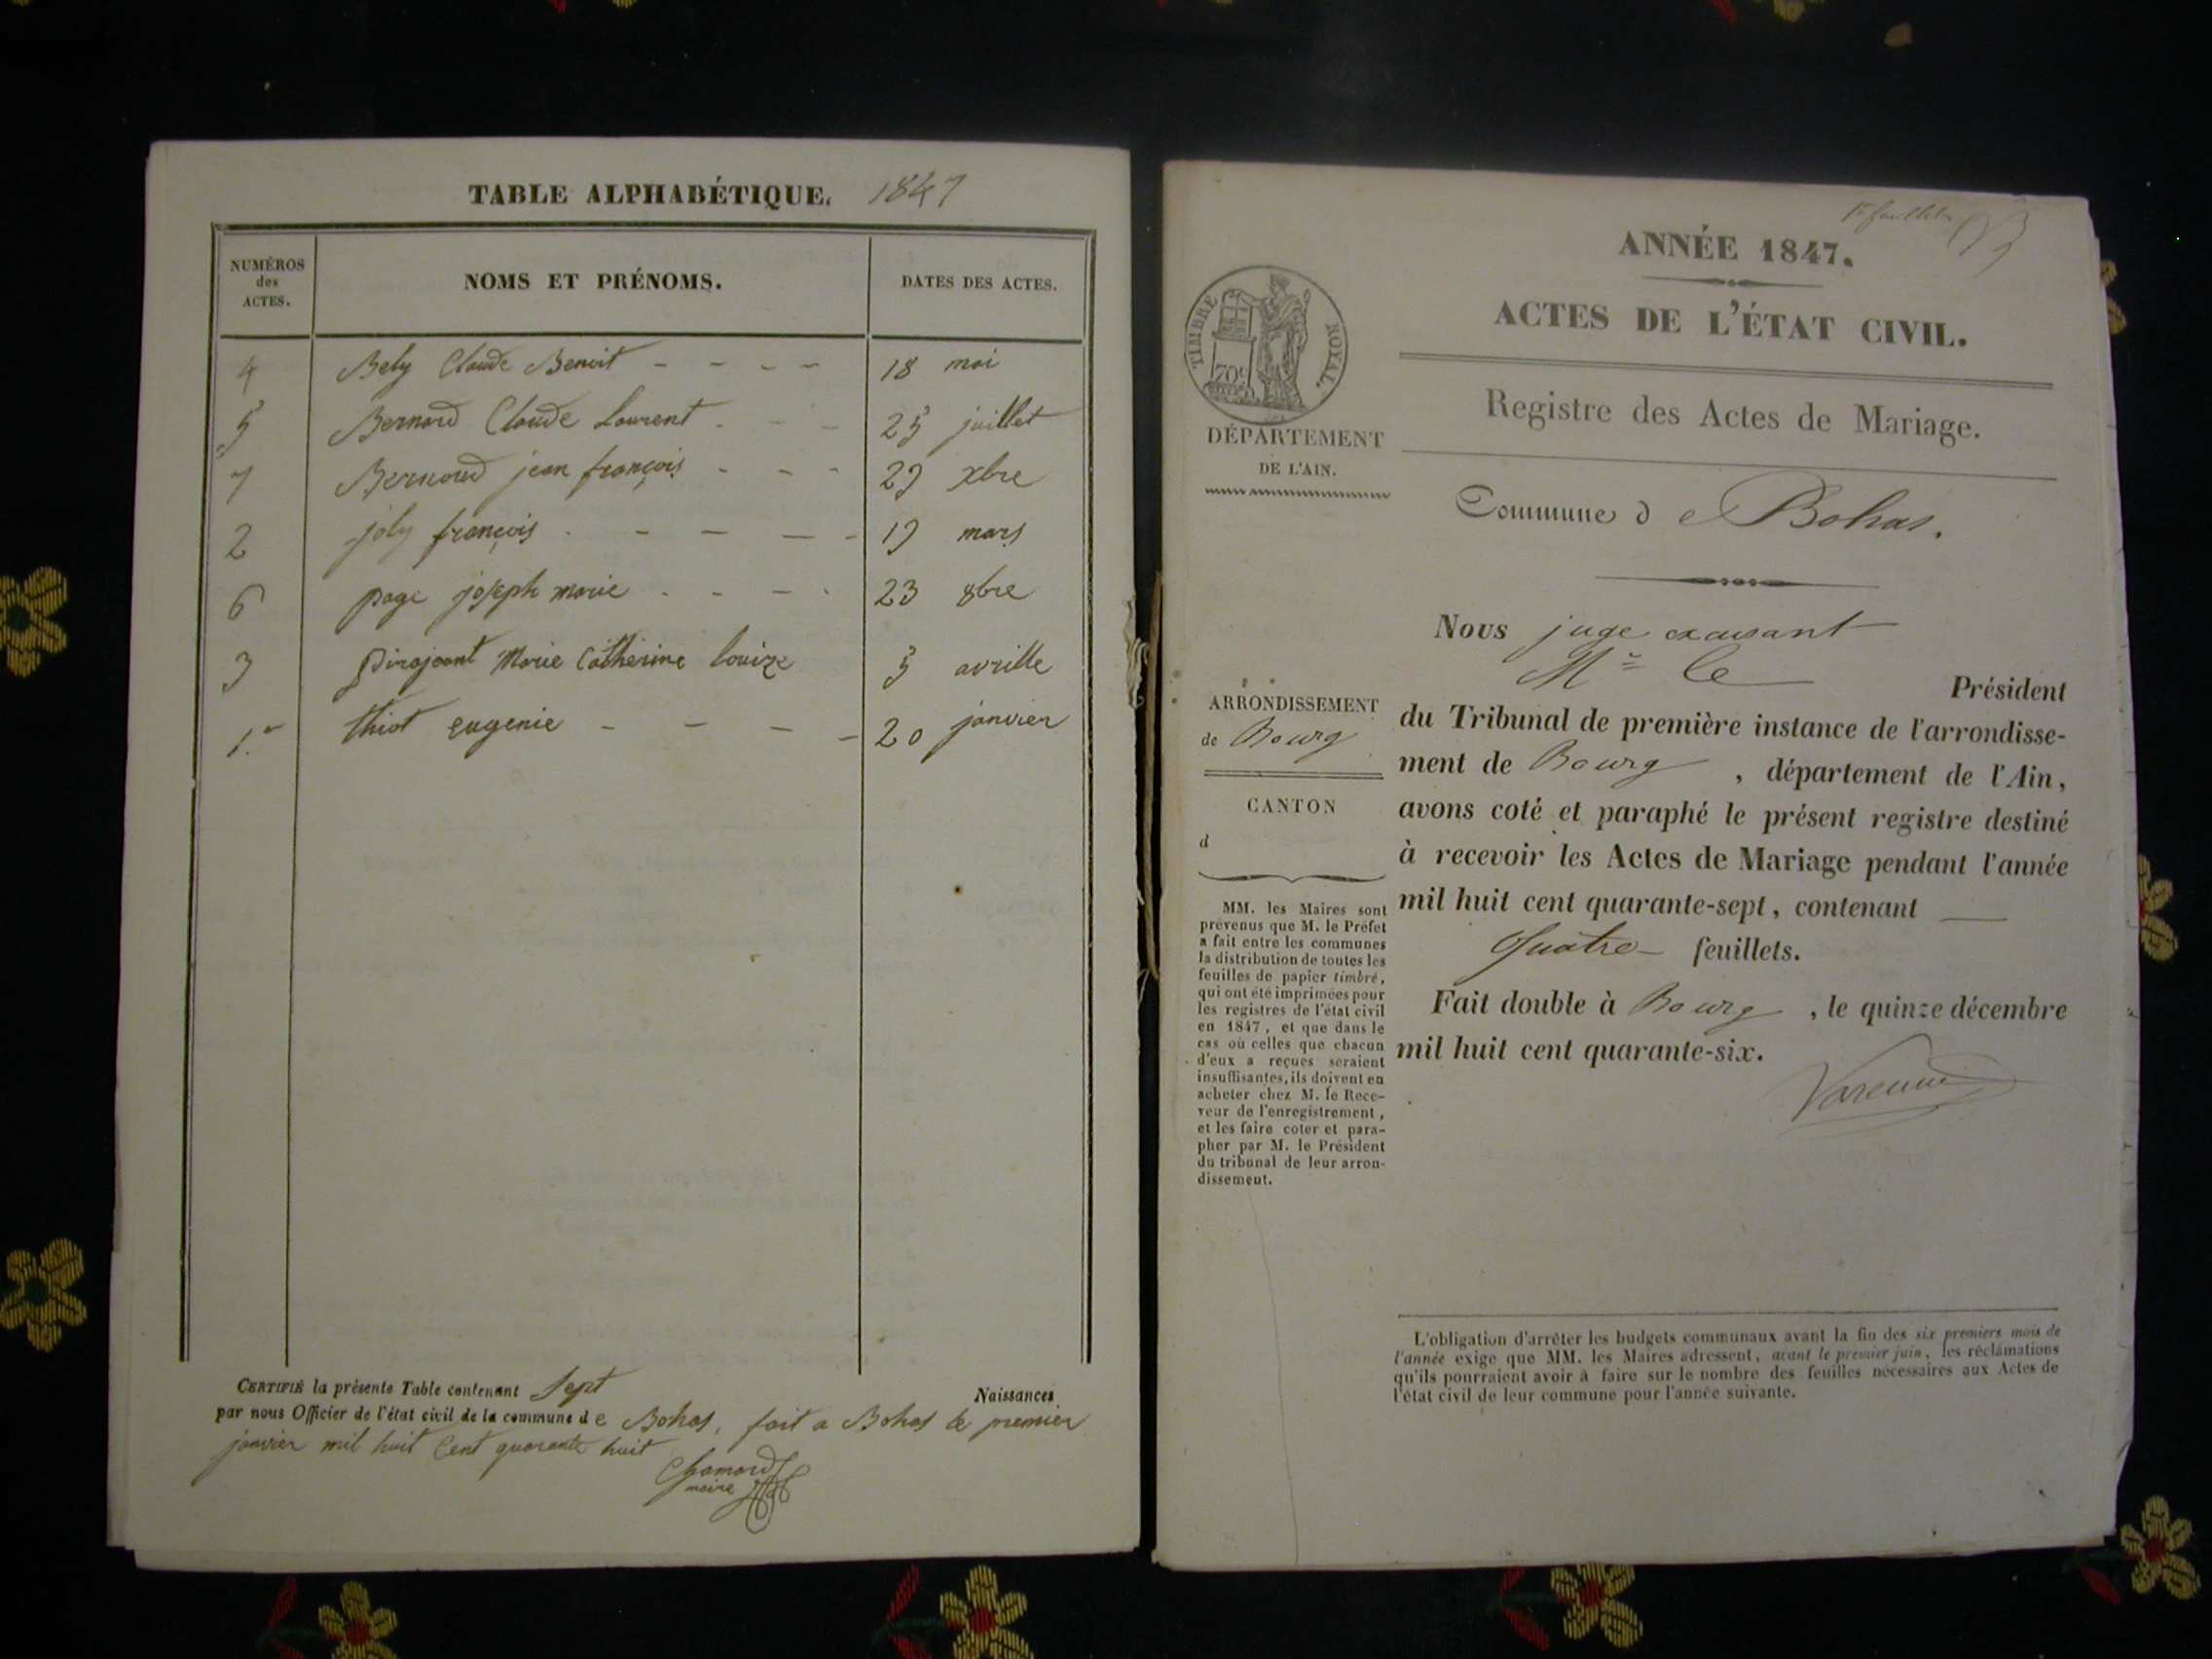 TABLE ALPHABÉTIQUE. 1847
NUMÉROS des ACTES.
NOMS ET PRÉNOMS.
DATES DES ACTES.
4 Bely Claude Benoit - - - - 18 mai
5 Bernard Claude Laurent - - - 25 juillet
7 Bernoud jean françois - - - 29 xbre
2 joly françois - - - - - 19 mars
6 page joseph marie - - - - 23 8bre
3 pirajeant Marie Catherine louize 5 avrille
1.er thiot eugenie - - - - 20 janvier
CERTIFIÉ la présente Table contenant Sept Naissances
par nous Officier de l'état civil de la commune de Bohas, fait a Bohas le premier
janvier mil huit Cent quarante huit
Chamard
maire
1er feuillet
ANNÉE 1847.
ACTES DE L'ÉTAT CIVIL.
TIMBRE ROYAL.
70c
DÉPARTEMENT
DE L'AIN.
Registre des Actes de Mariage.
Commune de Bohas.
Nous juge
Mr le
Président
du Tribunal de première instance de l'arrondisse-
ment de Bourg, département de l'Ain,
avons coté et paraphé le présent registre destiné
à recevoir les Actes de Mariage pendant l'année
mil huit cent quarante-sept, contenant
Quatre feuillets.
Fait double à Bourg, le quinze décembre
mil huit cent quarante-six.
ARRONDISSEMENT
de Bourg
CANTON
d
MM. les Maires sont
prévenus que M. le Préfet
a fait entre les communes
la distribution de toutes les
feuilles de papier timbré,
qui ont été imprimées pour
les registres de l'état civil
en 1847, et que dans le
cas où celles que chacun
d'eux a reçues seraient
insuffisantes, ils doivent en
acheter chez M. le Rece-
veur de l'enregistrement,
et les faire coter et para-
pher par M. le Président
du tribunal de leur arron-
dissement.
L'obligation d'arrêter les budgets communaux avant la fin des six premiers mois de
l'année exige que MM. les Maires adressent, avant le premier juin, les réclamations
qu'ils pourraient avoir à faire sur le nombre des feuilles nécessaires aux Actes de
l'état civil de leur commune pour l'année suivante.